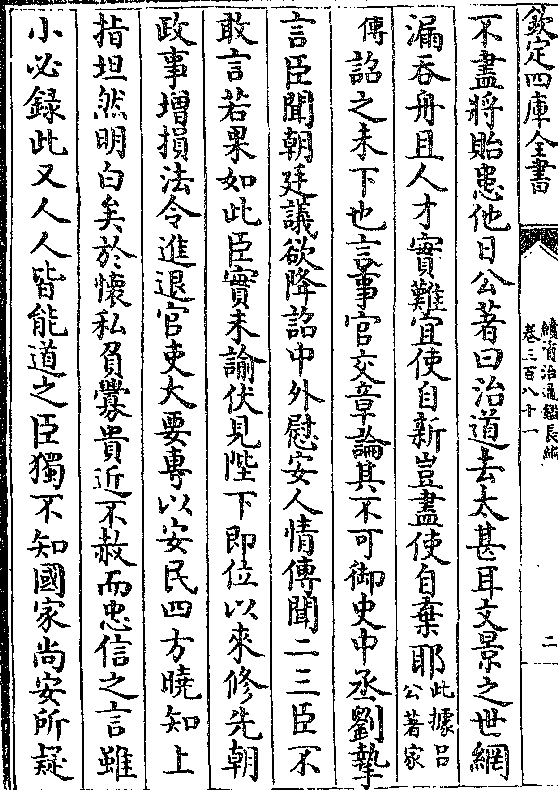 欽定四庫全書
續資治通鑑長編
卷三百八十一
二
不盡將貽患他日公著曰治道去太甚耳文景之世網
漏吞舟且人才實難宜使自新豈盡使自棄耶此據吕
公著家
傳詔之未下也言事官交章論其不可御史中丞劉摯
言臣聞朝廷議欲降詔中外慰安人情傳聞二三臣不
敢言若果如此臣實未諭伏見陛下即位以來修先朝
政事增損法令進退官吏大要專以安民四方曉知上
指坦然明白矣於懷私負釁貴近不赦而忠信之言雖
小必録此又人人皆能道之臣獨不知國家尚安所疑